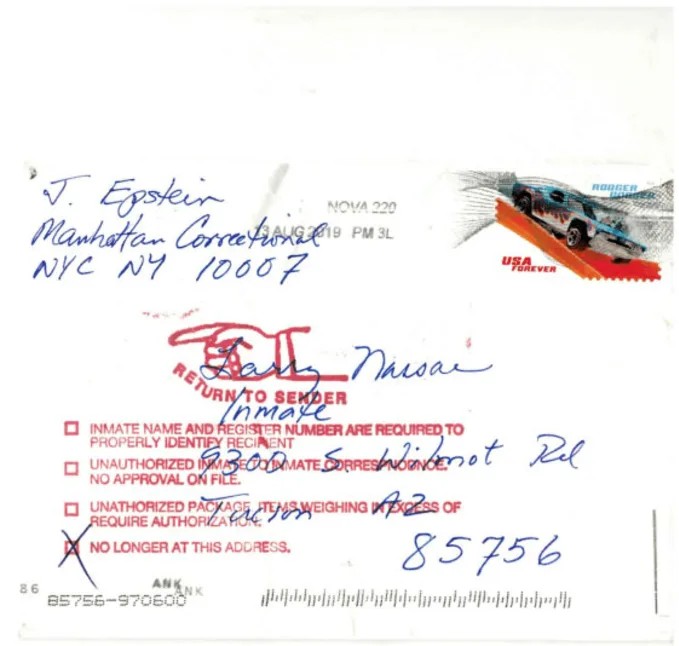 J. Epstein
Manhattan Correctional
NYC NY 10007
NOVA 220
13 AUG 2019 PM 3L
RODGER
DODGER
USA
FOREVER
Larry Nassar
RETURN TO SENDER
Inmate
INMATE NAME AND REGISTER NUMBER ARE REQUIRED TO
PROPERLY IDENTIFY
9300 S. Wilmot Rd
UNAUTHORIZED INMATE TO INMATE
NO APPROVAL ON FILE.
Tucson AZ
UNATHORIZED PACKAGE, ITEMS WEIGHING IN EXCESS OF
REQUIRE AUTHORIZATION.
NO LONGER AT THIS ADDRESS.
85756
ANK
ANK
86
85756-970600